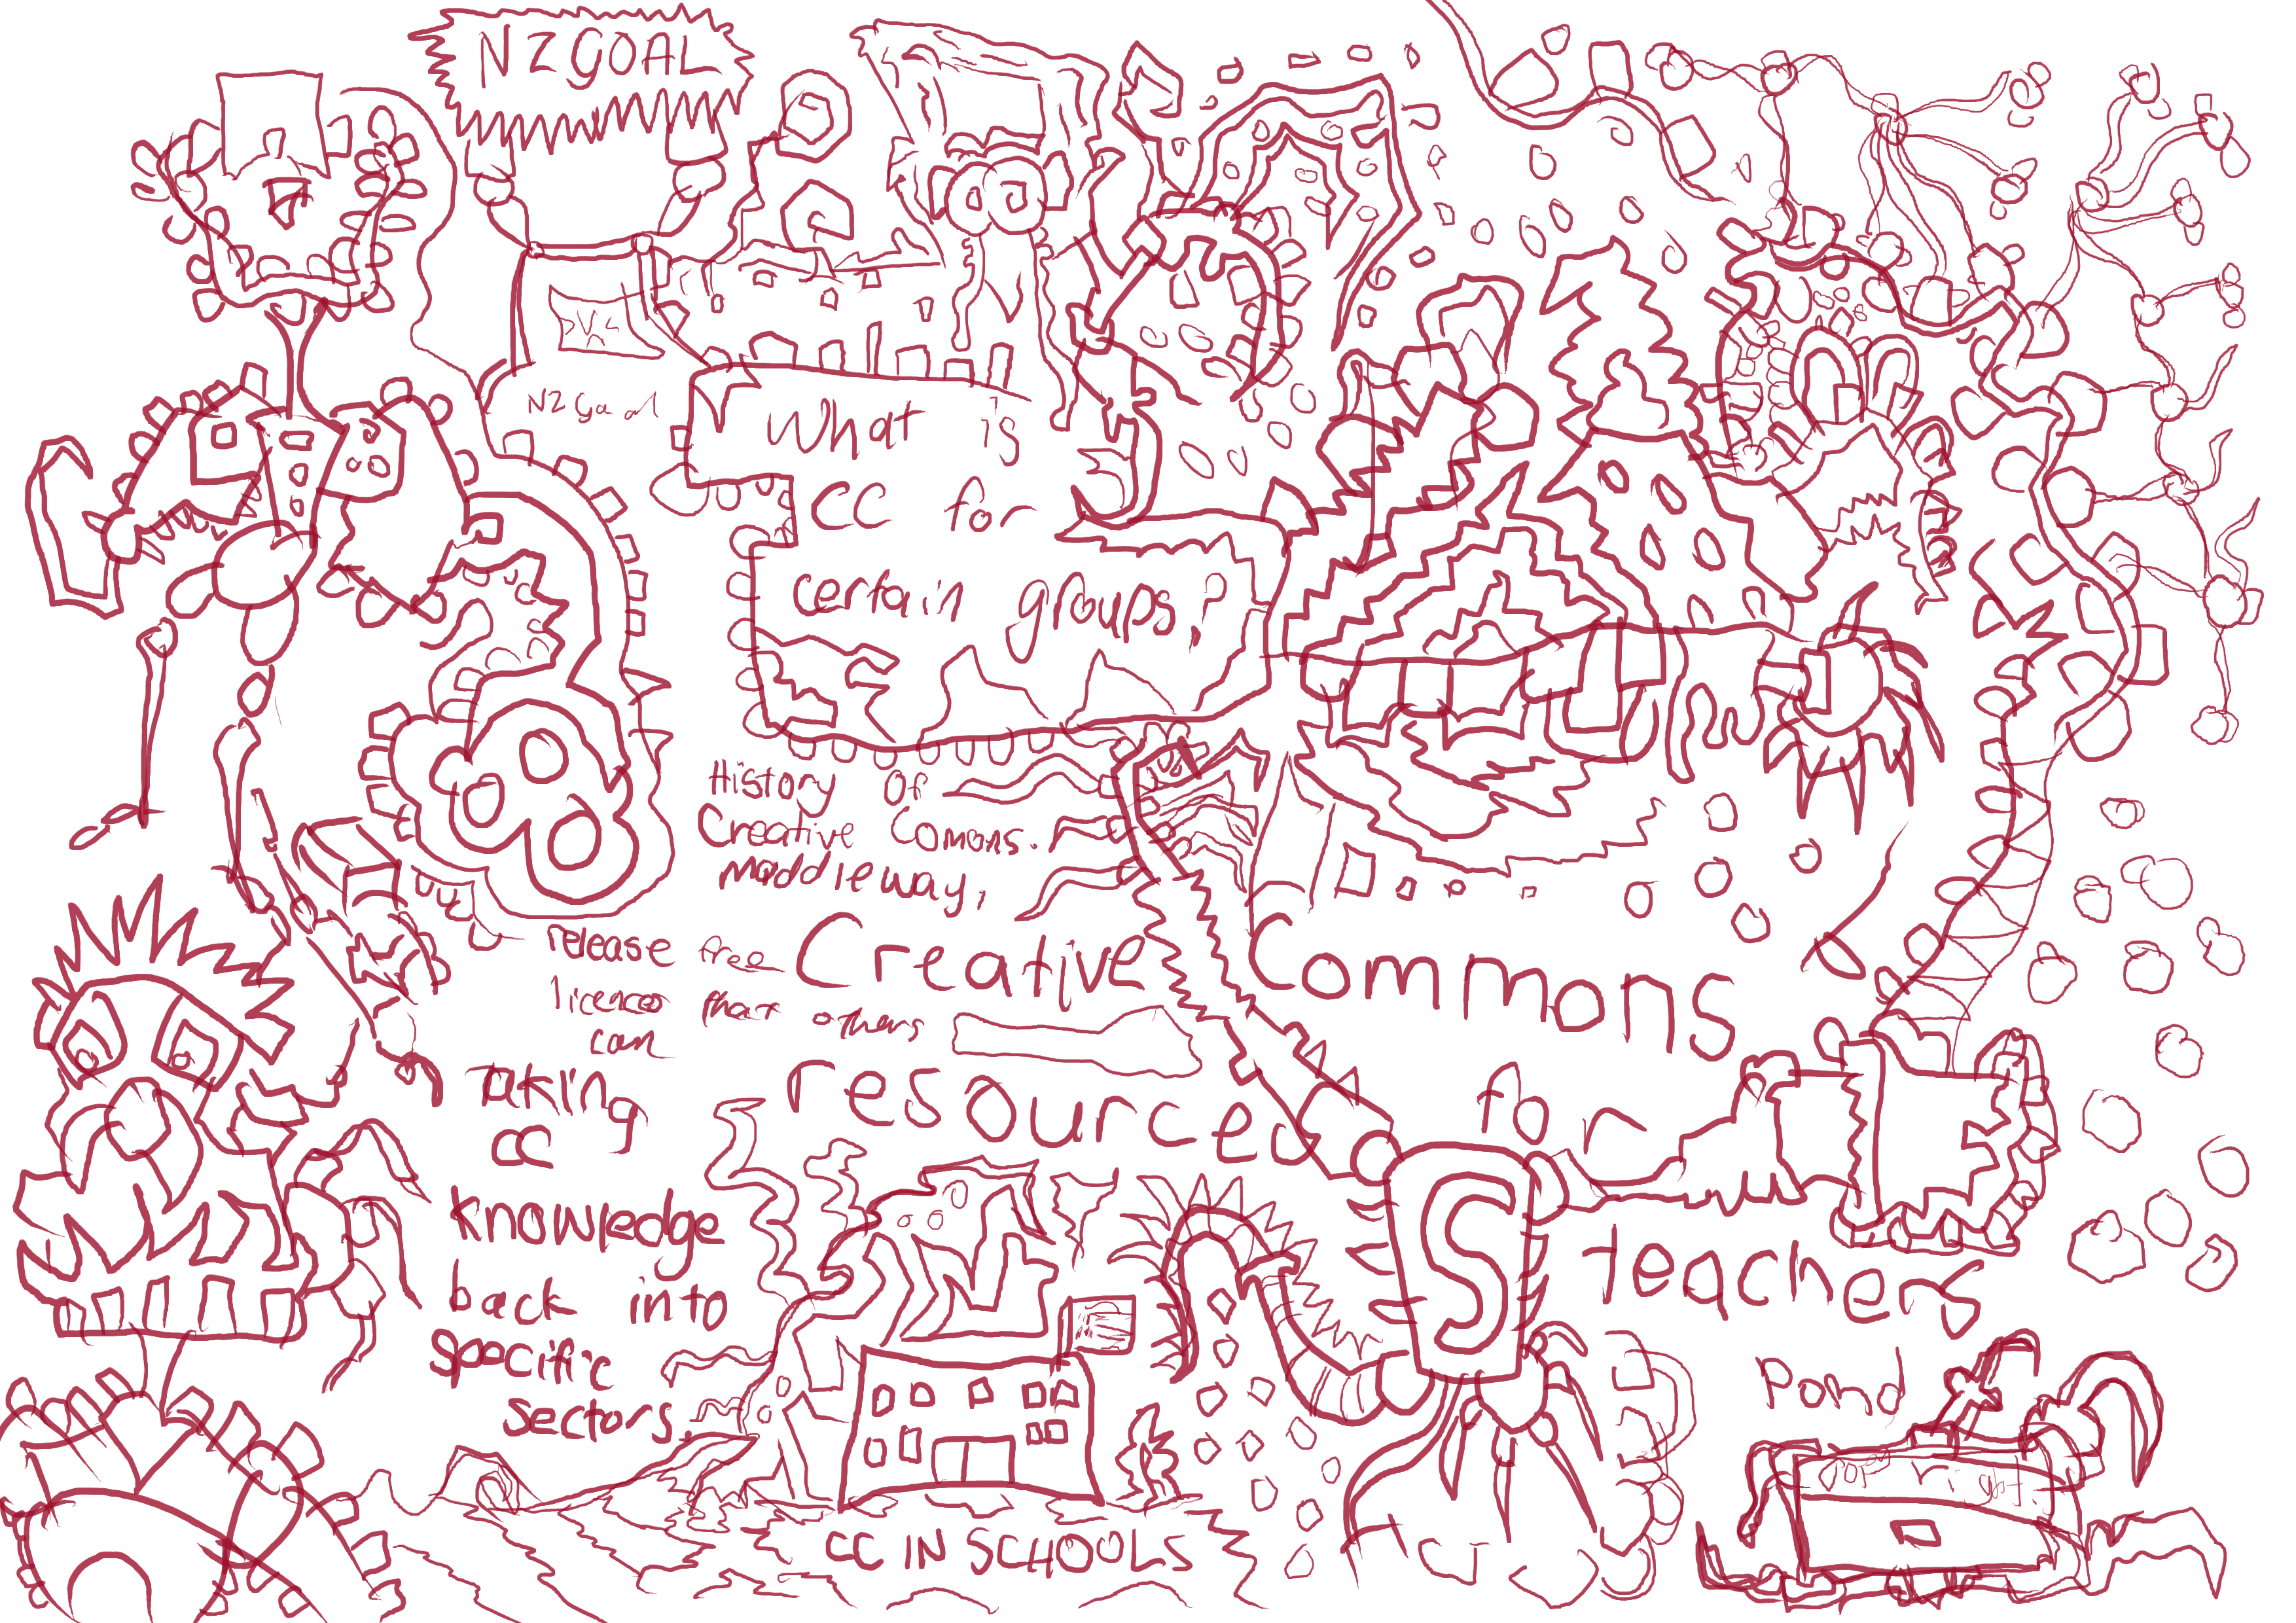 NZGOAL
NZ Goal
What is
CC for
certain groups?
History of
Creative Comons.
maddle way,
release free
licences that others
can
Creative Commons
resources for
teachers
Taking
CC
knowledge
back into
specific
sectors.
S
Pond
Copy right
CC IN SCHOOLS